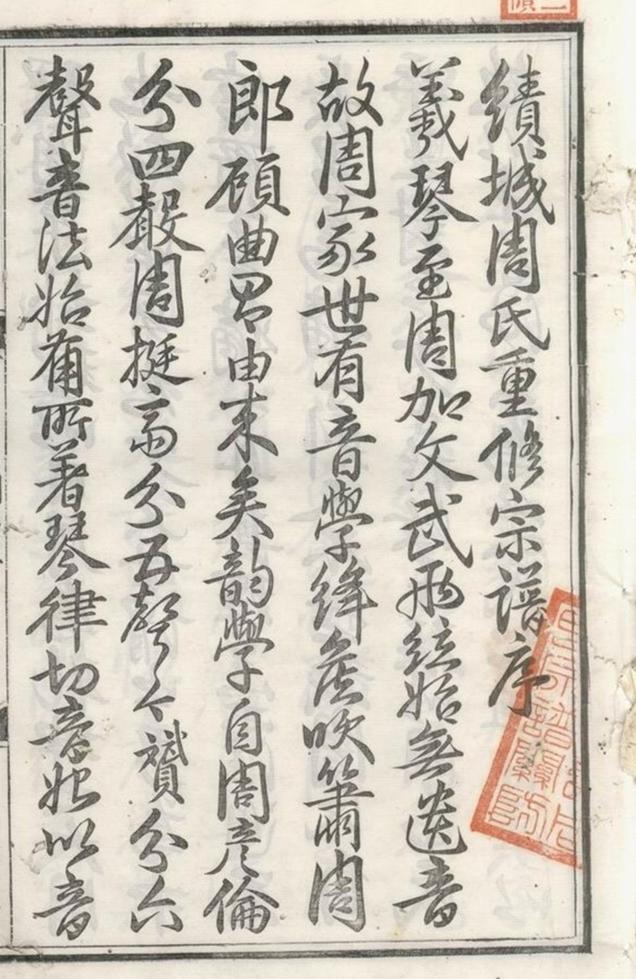 績城周氏重修宗譜序
羲琴至周加文武兩絃始無遺音
故周家世有音學絳侯吹簫周
郎顧曲由来矣韵學自周彥倫
分四聲周挺斎分五聲今贇分六
聲音法始備所著琴律切音能以音